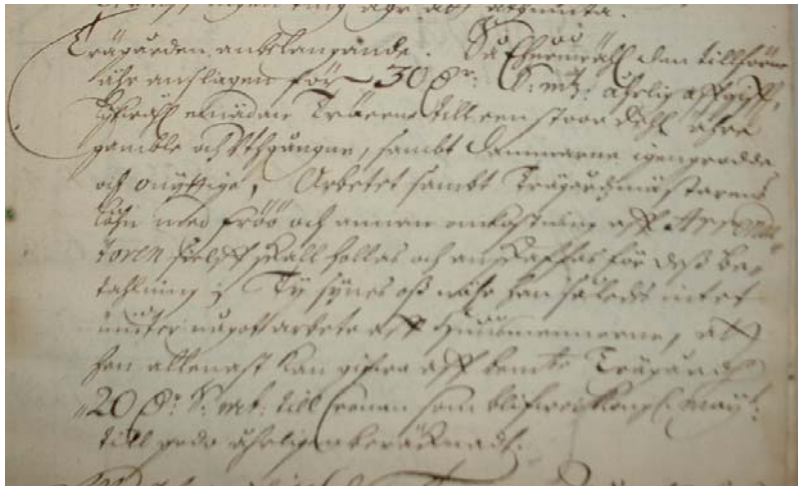 Trägården anbelangande. Så Ehuruwäll den tillförne
ähr anslagen för 30 Dr: S:mt: åhrlig affgifft,
lijkwäl emädan Träen till een stoor dehl ähre
gamble och Uthgångne, sambt dammarne igengrodde
och onyttige, Arbetet sambt Trägårdzmästarens
löhn med fröö och annan omkostning aff Arrenda-
toren sielff skall hollas och anskaffas för dess be-
tahlning; Ty synes oss när han således intet
niuter något arbete aff Huusmennerne, att
han allenast kan gifwa aff bemte Trägård
20 Dr: S:mt: till Cronan som blifwer Kongl. Mayt:
till godo åhrligen beräknadt.